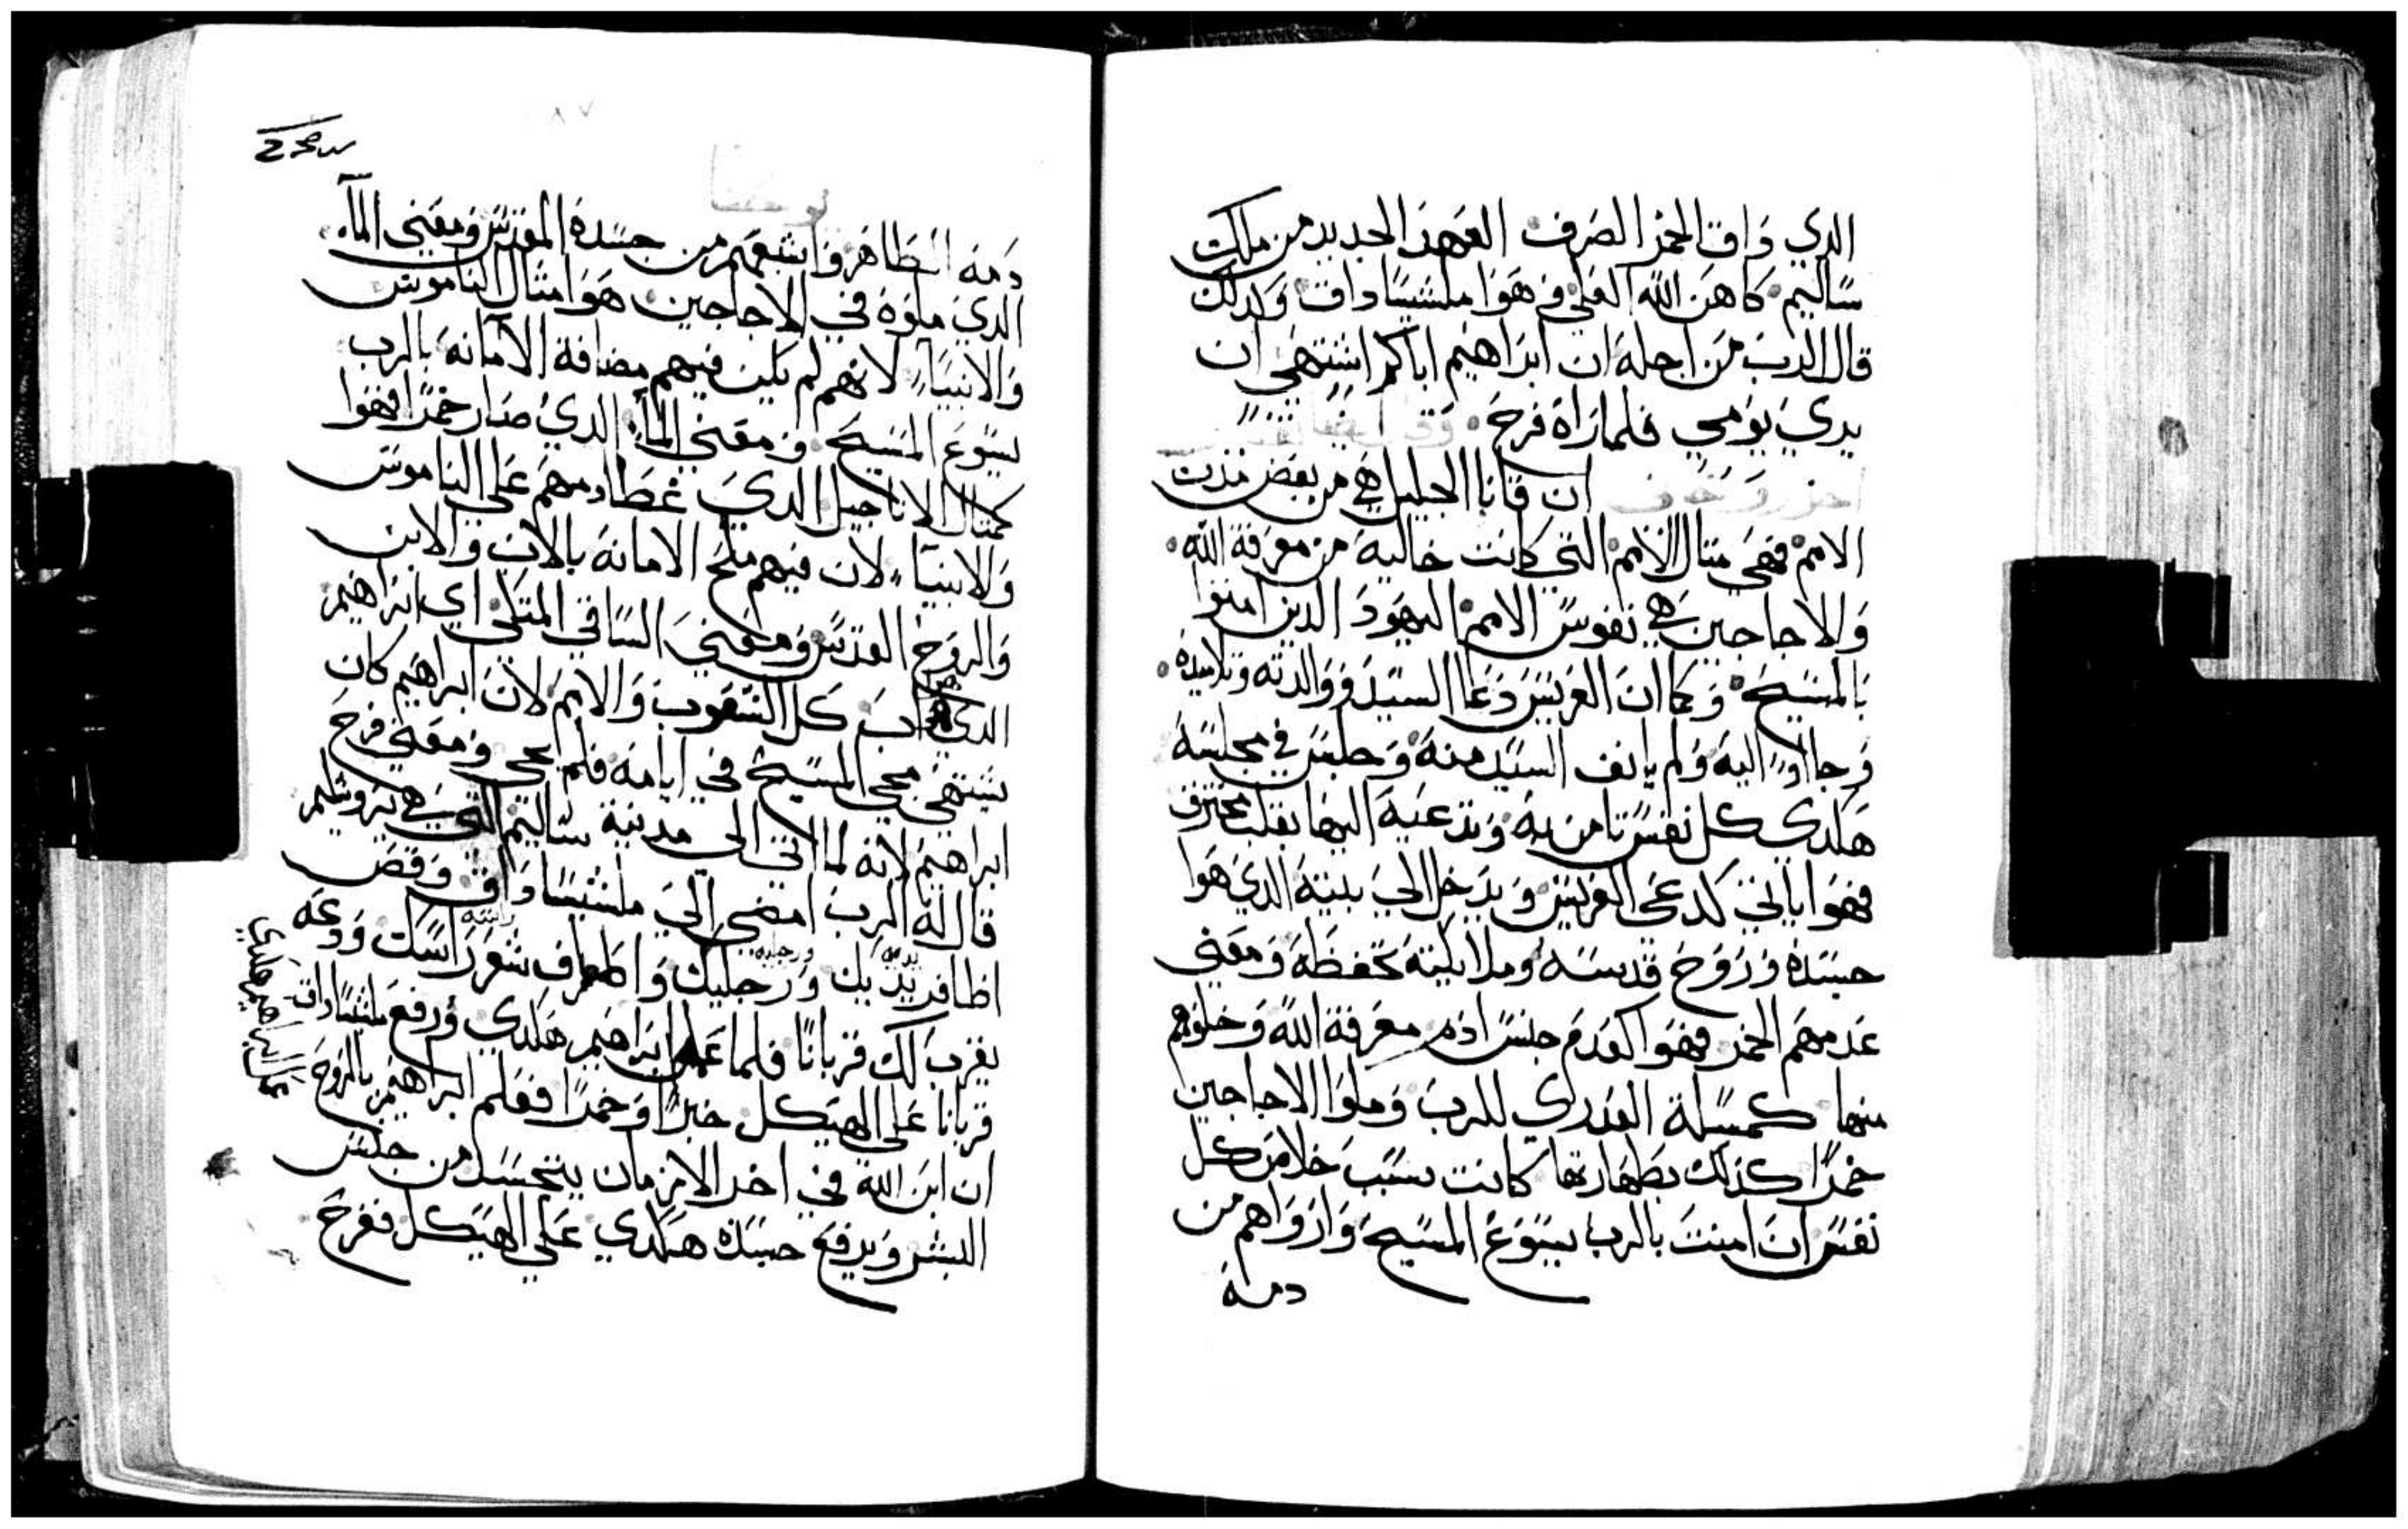 الدي داق الخمر الصرف العهد الجديد من ملك
ساليم كاهن الله العلي وهوا ملشيساداق وكدلك
قال الرب من اجله ان ابراهيم اباكم اشتهي ان
يري يومي فلما راه فرح
ان قانا الجليل هي من بعض مدن
الامم فهي متال الامم التي كانت خاليه من معرفة الله
والاجاجين هي نفوس الامم اليهود الدين امنوا
بالمسيح وكما ان العريس دعا السيد ووالدته وتلاميده
وجاأوا اليه ولم يانف السيد منه وجلس في مجلسه
هكدي كل نفس تامن به وتدعيه اليها بقلب محترق
فهوا ياتي كدعي العريس ويدخل الي بيته الدي هوا
جسده وروح قدسه وملايكته تحفظه ومعني
عدمهم الخمر فهوا كعدم جنس ادم معرفة الله وخلوهم
منها كمسلة العدري للرب وملوا الاجاجين
خمرا كذلك بطهارتها كانت سبب خلاص كل
نفس ان امنت بالرب يسوع المسيح وارواهم من
دمه
دمه الطاهر واشبعهم من جسده المقدس ومعني الماء
الدي ملوه في الاجاجين هوا مثال الناموس
والانبياء لانهم لم يكن فيهم مضافة الامانه بالرب
يسوع المسيح ومعني الماء الدي صار خمرا فهوا
كمتال الاناجيل الدي غطا دمهم علي الناموس
والانبياء لان فيهم ملح الامانه بالاب والابن
والروح القدس ومعني الساقي المتكي اي ابراهيم
الدي هو اب كل الشعوب والامم لان ابراهيم كان
يشتهي مجي المسيح في ايامه فلم يجي ومعني فرح
ابراهيم لانه لما اتي الي مدينة ساليم التي هي يروشليم
قال له الرب امضي الي ملشيساداق وقص
اظافر يديك ورجليك واطراف شعر راسك ودعه
يديه ورجليه راسه
يقرب لك قربانا فلما عمل ابراهيم هكدي ورفع ملشيساداق
قربانا علي الهيكل خبزا وخمرا فعلم ابراهيم بالروح
ان ابن الله في اخر الازمان يتجسد من جنس
البشر ويرفع جسده هكدي علي الهيكل ففرح